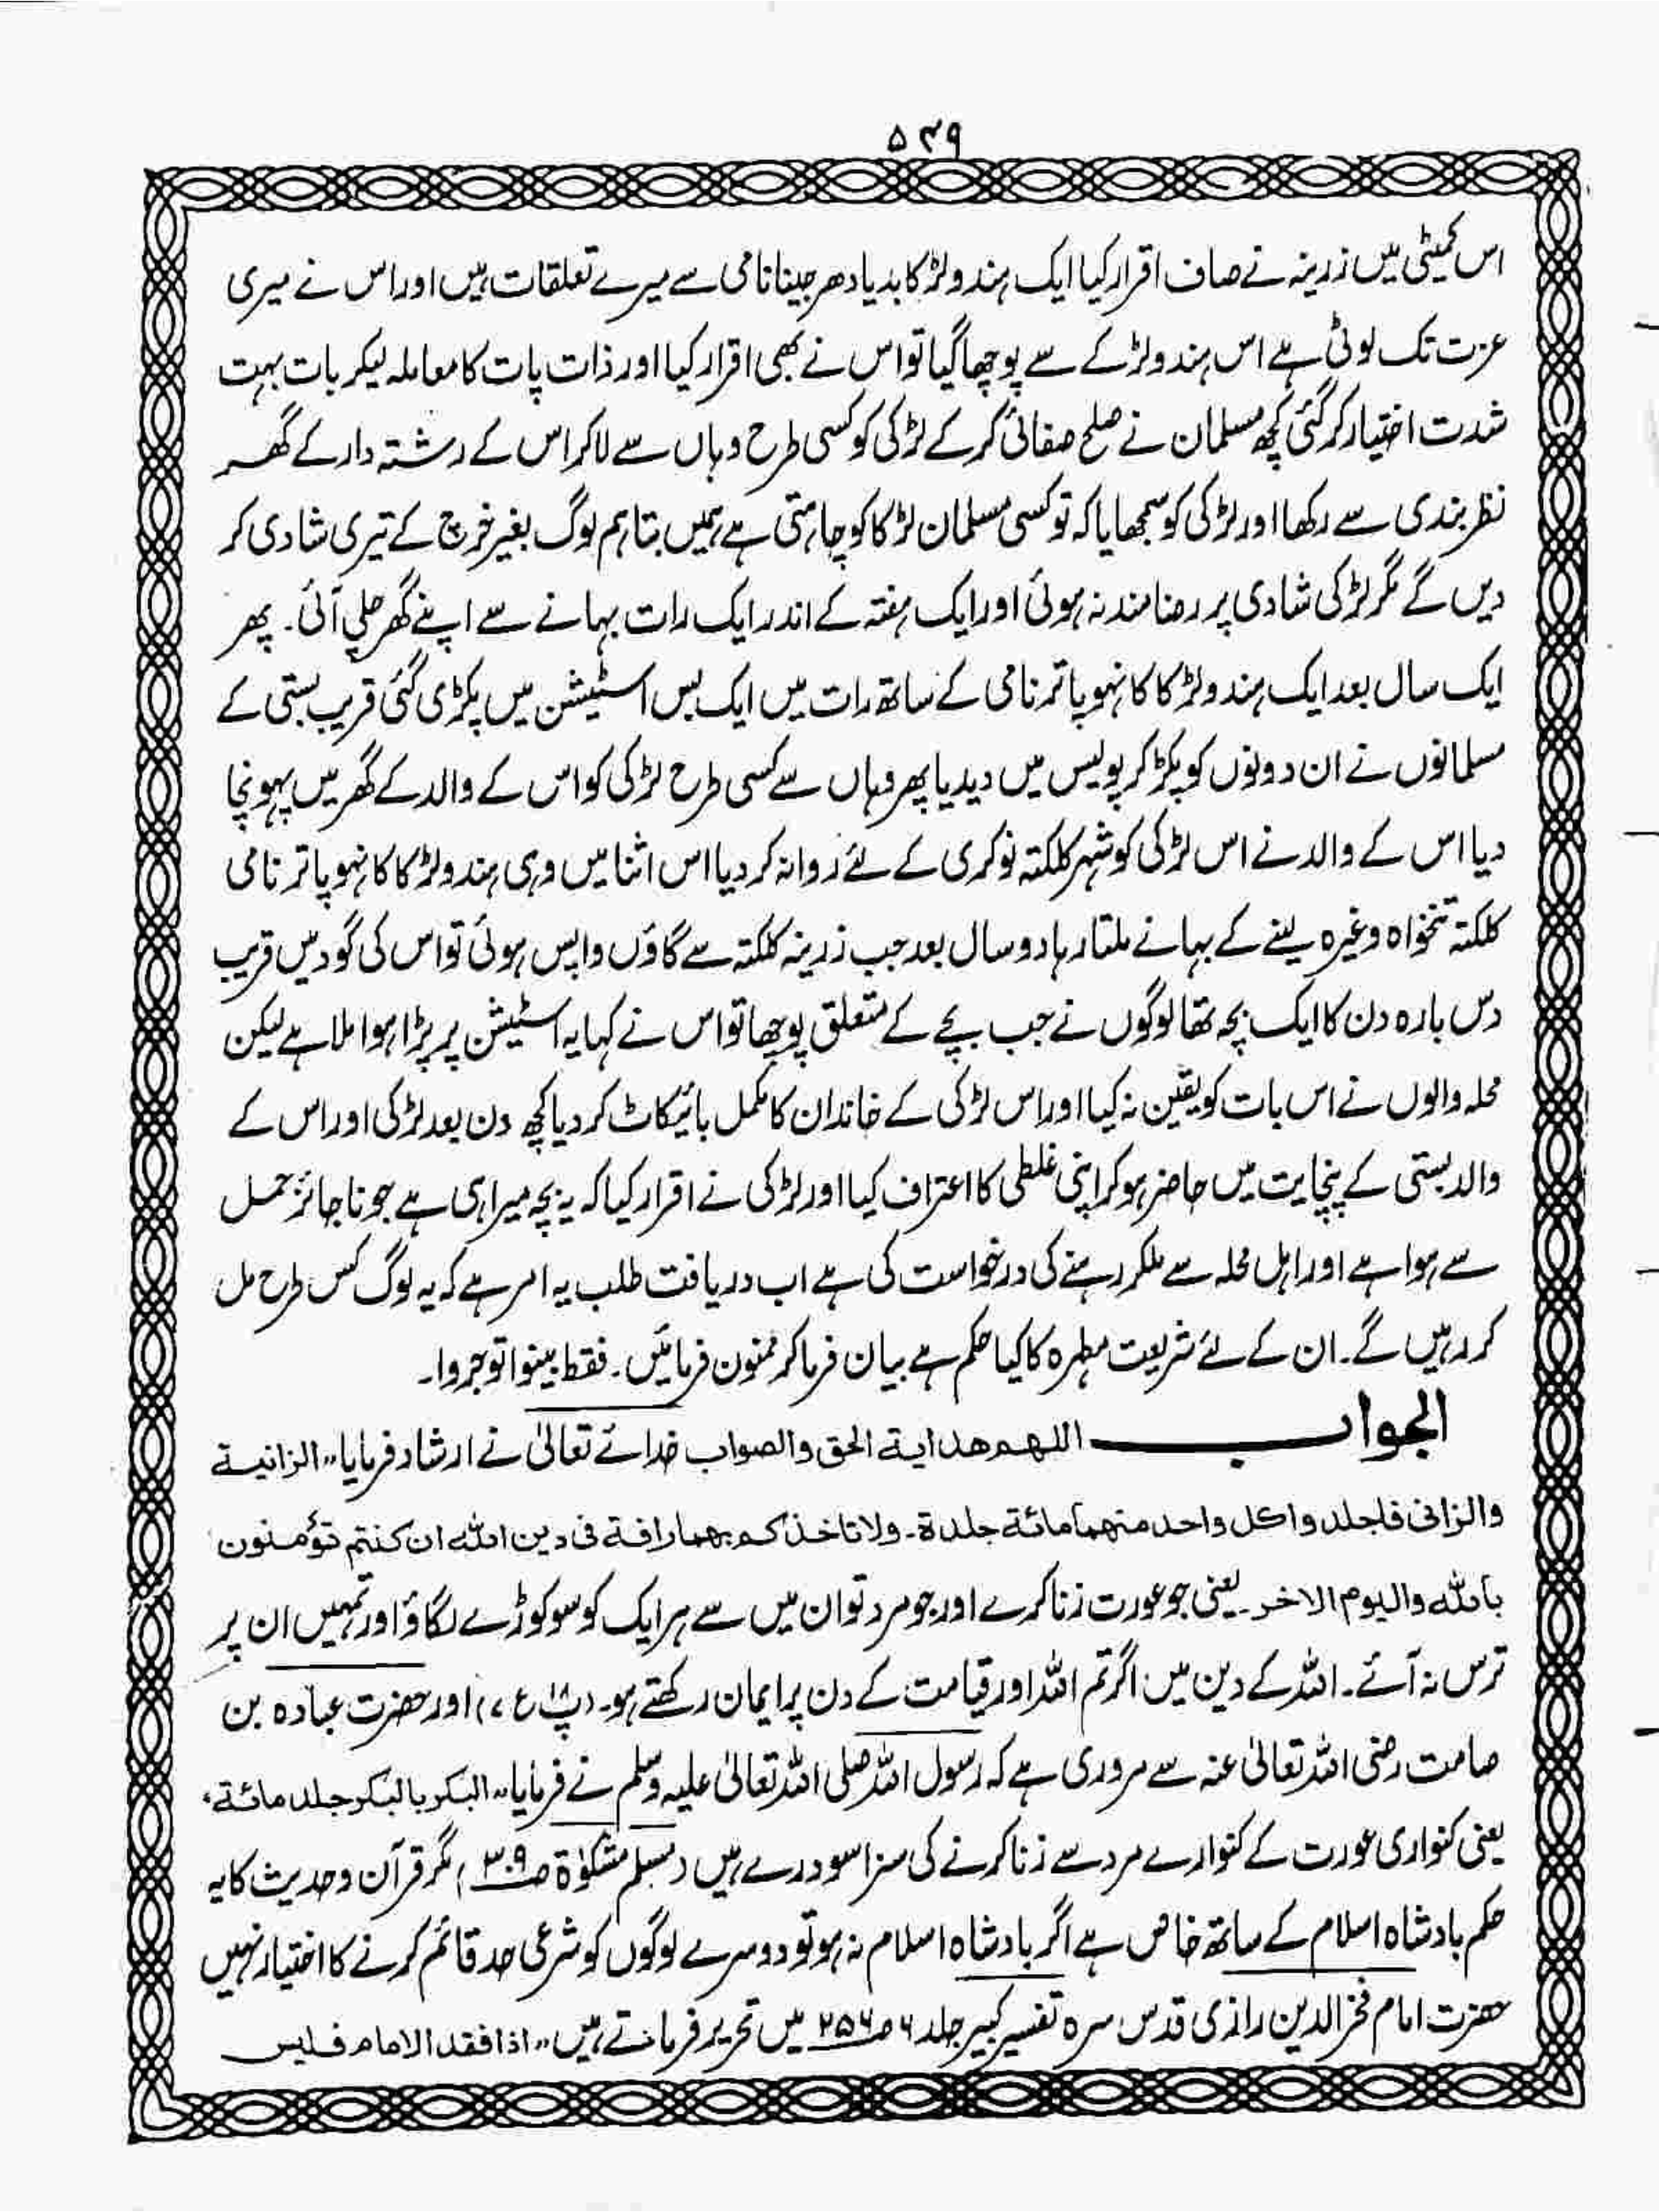 ۵۳۹
اس کمیٹی میں زرینہ نے صاف اقرار کیا ایک ہندو لڑکا بدیا دھر جینا نامی سے میرے تعلقات ہیں اور اس نے میری
عزت تک لوٹی ہے اس ہندو لڑکے سے پوچھا گیا تو اس نے بھی اقرار کیا اور ذات پات کا معاملہ لیکر بات بہت
شدت اختیار کر گئی کچھ مسلمان نے صلح صفائی کر کے لڑکی کو کسی طرح وہاں سے لاکر اس کے رشتہ دار کے گھر
نظر بندی سے رکھا اور لڑکی کو سمجھایا کہ تو کسی مسلمان لڑکا کو چاہتی ہے ہمیں بتا ہم لوگ بغیر خرچ کے تیری شادی کر
دیں گے مگر لڑکی شادی پر رضامند نہ ہوئی اور ایک ہفتہ کے اندر ایک رات بہانے سے اپنے گھر چلی آئی۔ پھر
ایک سال بعد ایک ہندو لڑکا کانہو پاتر نامی کے ساتھ رات میں ایک بس اسٹیشن میں پکڑی گئی قریب بستی کے
مسلمانوں نے ان دونوں کو پکڑ کر پولیس میں دیدیا پھر وہاں سے کسی طرح لڑکی کو اس کے والد کے گھر میں پہونچا
دیا اس کے والد نے اس لڑکی کو شہر کلکتہ نوکری کے لئے روانہ کر دیا اس اثنا میں وہی ہندو لڑکا کانہو پاتر نامی
کلکتہ تنخواہ وغیرہ لینے کے بہانے ملتا رہا دو سال بعد جب زرینہ کلکتہ سے گاؤں واپس ہوئی تو اس کی گود میں قریب
دس بارہ دن کا ایک بچہ تھا لوگوں نے جب بچے کے متعلق پوچھا تو اس نے کہا یہ اسٹیشن پر پڑا ہوا ملا ہے لیکن
محلہ والوں نے اس بات کو یقین نہ کیا اور اس لڑکی کے خاندان کا مکمل بائیکاٹ کر دیا کچھ دن بعد لڑکی اور اس کے
والد بستی کے پنچایت میں حاضر ہو کر اپنی غلطی کا اعتراف کیا اور لڑکی نے اقرار کیا کہ یہ بچہ میرا ہی ہے جو ناجائز حمل
سے ہوا ہے اور اہل محلہ سے ملکر رہنے کی درخواست کی ہے اب دریافت طلب یہ امر ہے کہ یہ لوگ کس طرح مل
کر رہیں گے۔ ان کے لئے شریعت مطہرہ کا کیا حکم ہے بیان فرما کر ممنون فرمائیں۔ فقط بینوا توجروا۔
الجواب ـــــ اللھم ھدایۃ الحق والصواب خدائے تعالیٰ نے ارشاد فرمایا ،،الزانیۃ
والزانی فاجلدوا کل واحد منھما مائۃ جلدۃ۔ ولا تاخذکم بھما رافۃ فی دین اللہ ان کنتم تؤمنون
باللہ والیوم الاخر۔ یعنی جو عورت زنا کرے اور جو مرد تو ان میں سے ہر ایک کو سو کوڑے لگاؤ اور تمہیں ان پر
ترس نہ آئے۔ اللہ کے دین میں اگر تم اللہ اور قیامت کے دن پر ایمان رکھتے ہو۔ (پ۱۸ ع۷) اور حضرت عبادہ بن
صامت رضی اللہ تعالیٰ عنہ سے مروری ہے کہ رسول اللہ صلی اللہ تعالیٰ علیہ وسلم نے فرمایا ،،البکر بالبکر جلد مائۃ،
یعنی کنواری عورت کے کنوارے مرد سے زنا کرنے کی سزا سو درے ہیں (مسلم مشکوٰۃ ص۳۰۹) مگر قرآن و حدیث کا یہ
حکم بادشاہ اسلام کے ساتھ خاص ہے اگر بادشاہ اسلام نہ ہو تو دوسرے لوگوں کو شرعی حد قائم کرنے کا اختیار نہیں
حضرت امام فخر الدین رازی قدس سرہ تفسیر کبیر جلد ۶ ص۲۵۶ میں تحریر فرماتے ہیں ،،اذا فقد الامام فلیس